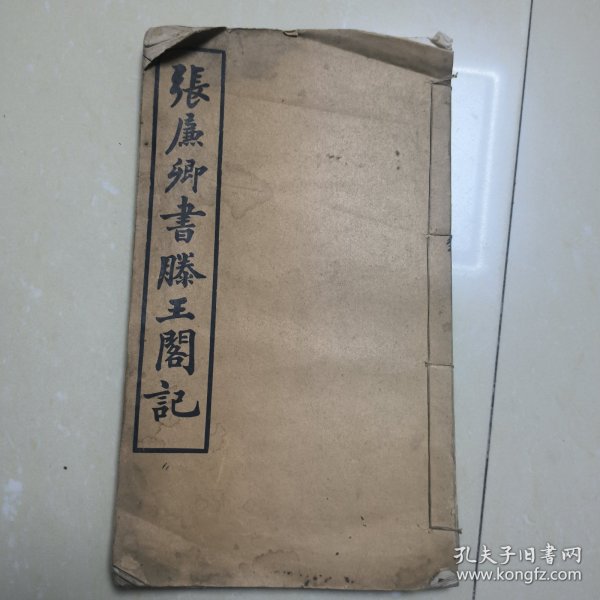 張廉卿書滕王閣記
孔夫子旧书网
www.kongfz.com